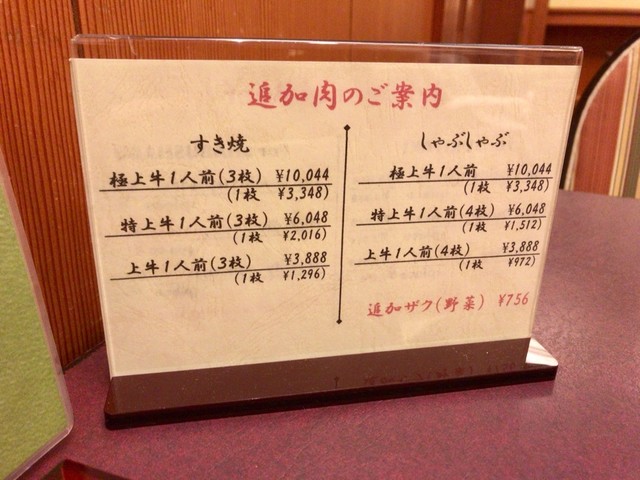 追加肉のご案内
すき焼
極上牛1人前(3枚) ¥10,044
(1枚 ¥3,348)
特上牛1人前(3枚) ¥6,048
(1枚 ¥2,016)
上牛1人前(3枚) ¥3,888
(1枚 ¥1,296)
しゃぶしゃぶ
極上牛1人前 ¥10,044
(1枚 ¥3,348)
特上牛1人前(4枚) ¥6,048
(1枚 ¥1,512)
上牛1人前(4枚) ¥3,888
(1枚 ¥972)
追加ザク(野菜) ¥756